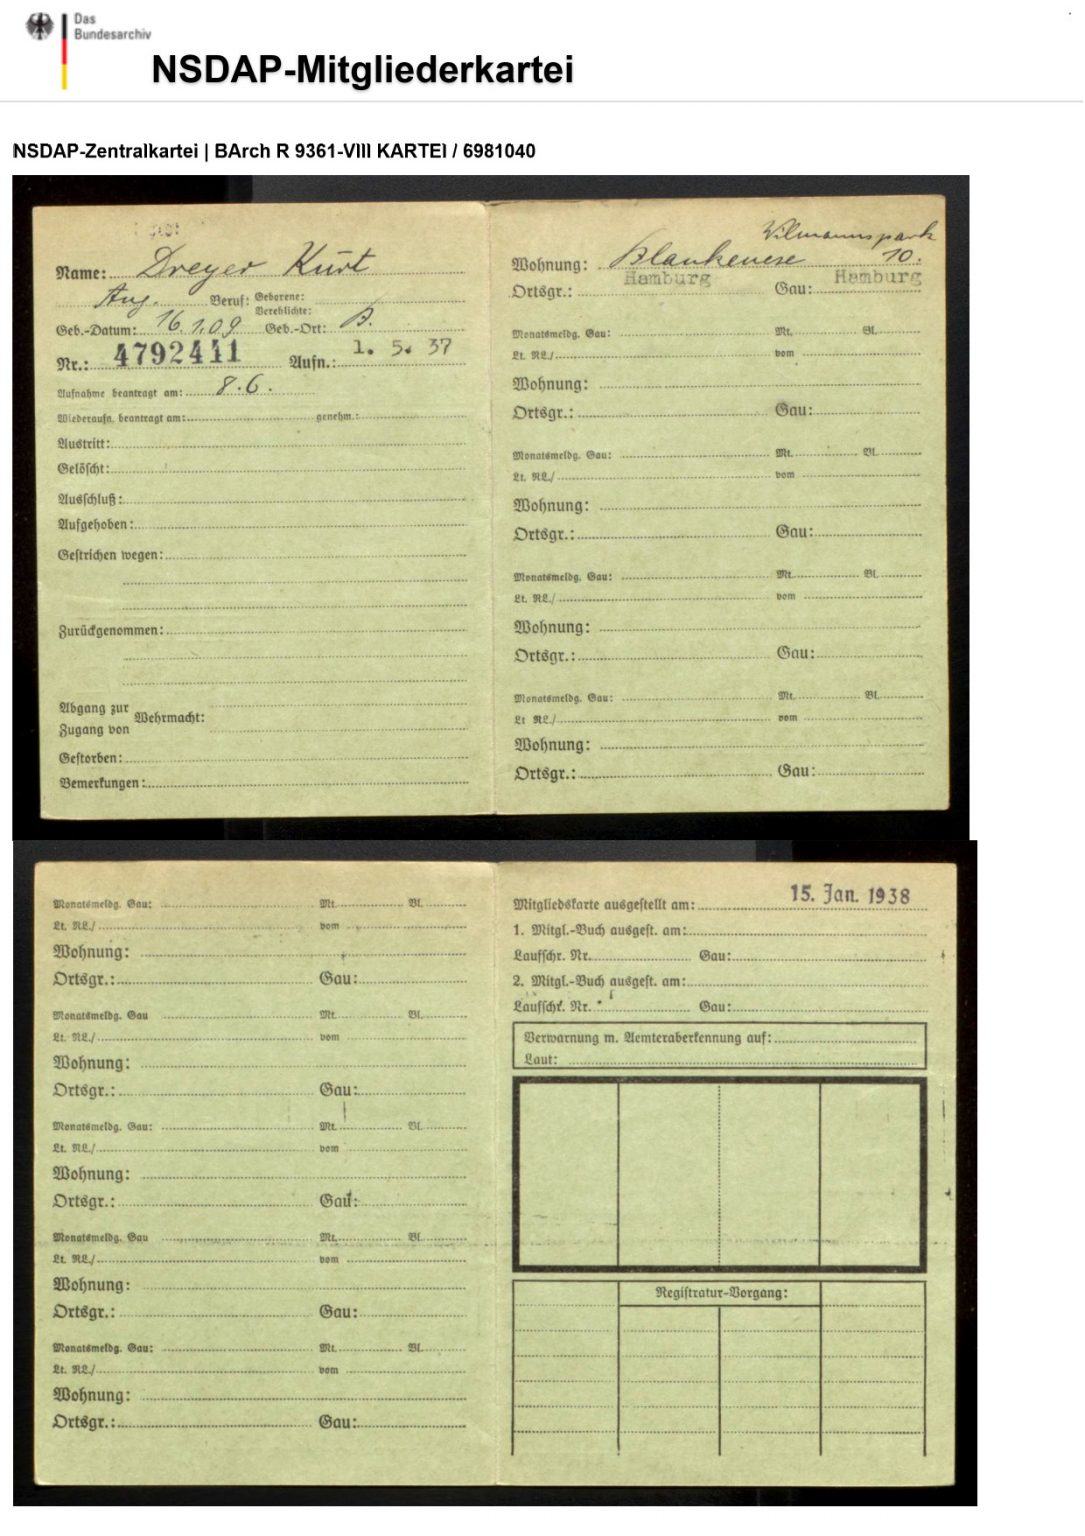 Das
Bundesarchiv
NSDAP-Mitgliederkartei
NSDAP-Zentralkartei | BArch R 9361-VIII KARTEI / 6981040
Name: Dreyer Kurt
Ang. Beruf: Geborene:
Verehlichte:
Geb.-Datum: 16.1.09 Geb.-Ort: B.
Nr.: 4792441 Aufn.: 1. 5. 37
Aufnahme beantragt am: 8.6.
Wiederaufn. beantragt am: genehm.:
Austritt:
Gelöscht:
Ausschluß:
Aufgehoben:
Gestrichen wegen:
Zurückgenommen:
Abgang zur
Zugang von Wehrmacht:
Gestorben:
Bemerkungen:
Wilmannspark
Wohnung: Blankenese 10.
Ortsgr.: Hamburg Gau: Hamburg
Monatsmeldg. Gau: Mt. Bl.
Lt. RL./ vom
Wohnung:
Ortsgr.: Gau:
Monatsmeldg. Gau: Mt. Bl.
Lt. RL./ vom
Wohnung:
Ortsgr.: Gau:
Monatsmeldg. Gau: Mt. Bl.
Lt. RL./ vom
Wohnung:
Ortsgr.: Gau:
Monatsmeldg. Gau: Mt. Bl.
Lt RL./ vom
Wohnung:
Ortsgr.: Gau:
Monatsmeldg. Gau: Mt. Bl.
Lt. RL./ vom
Wohnung:
Ortsgr.: Gau:
Monatsmeldg. Gau Mt. Bl.
Lt. RL./ vom
Wohnung:
Ortsgr.: Gau:
Monatsmeldg. Gau: Mt. Bl.
Lt. RL./ vom
Wohnung:
Ortsgr.: Gau:
Monatsmeldg. Gau Mt. Bl.
Lt. RL./ vom
Wohnung:
Ortsgr.: Gau:
Monatsmeldg. Gau: Mt. Bl.
Lt. RL./ vom
Wohnung:
Ortsgr.: Gau:
Mitgliedskarte ausgestellt am: 15. Jan. 1938
1. Mitgl.-Buch ausgest. am:
Laufschr. Nr. Gau:
2. Mitgl.-Buch ausgest. am:
Laufschr. Nr. Gau:
Verwarnung m. Aemteraberkennung auf:
Laut:
Registratur-Vorgang: